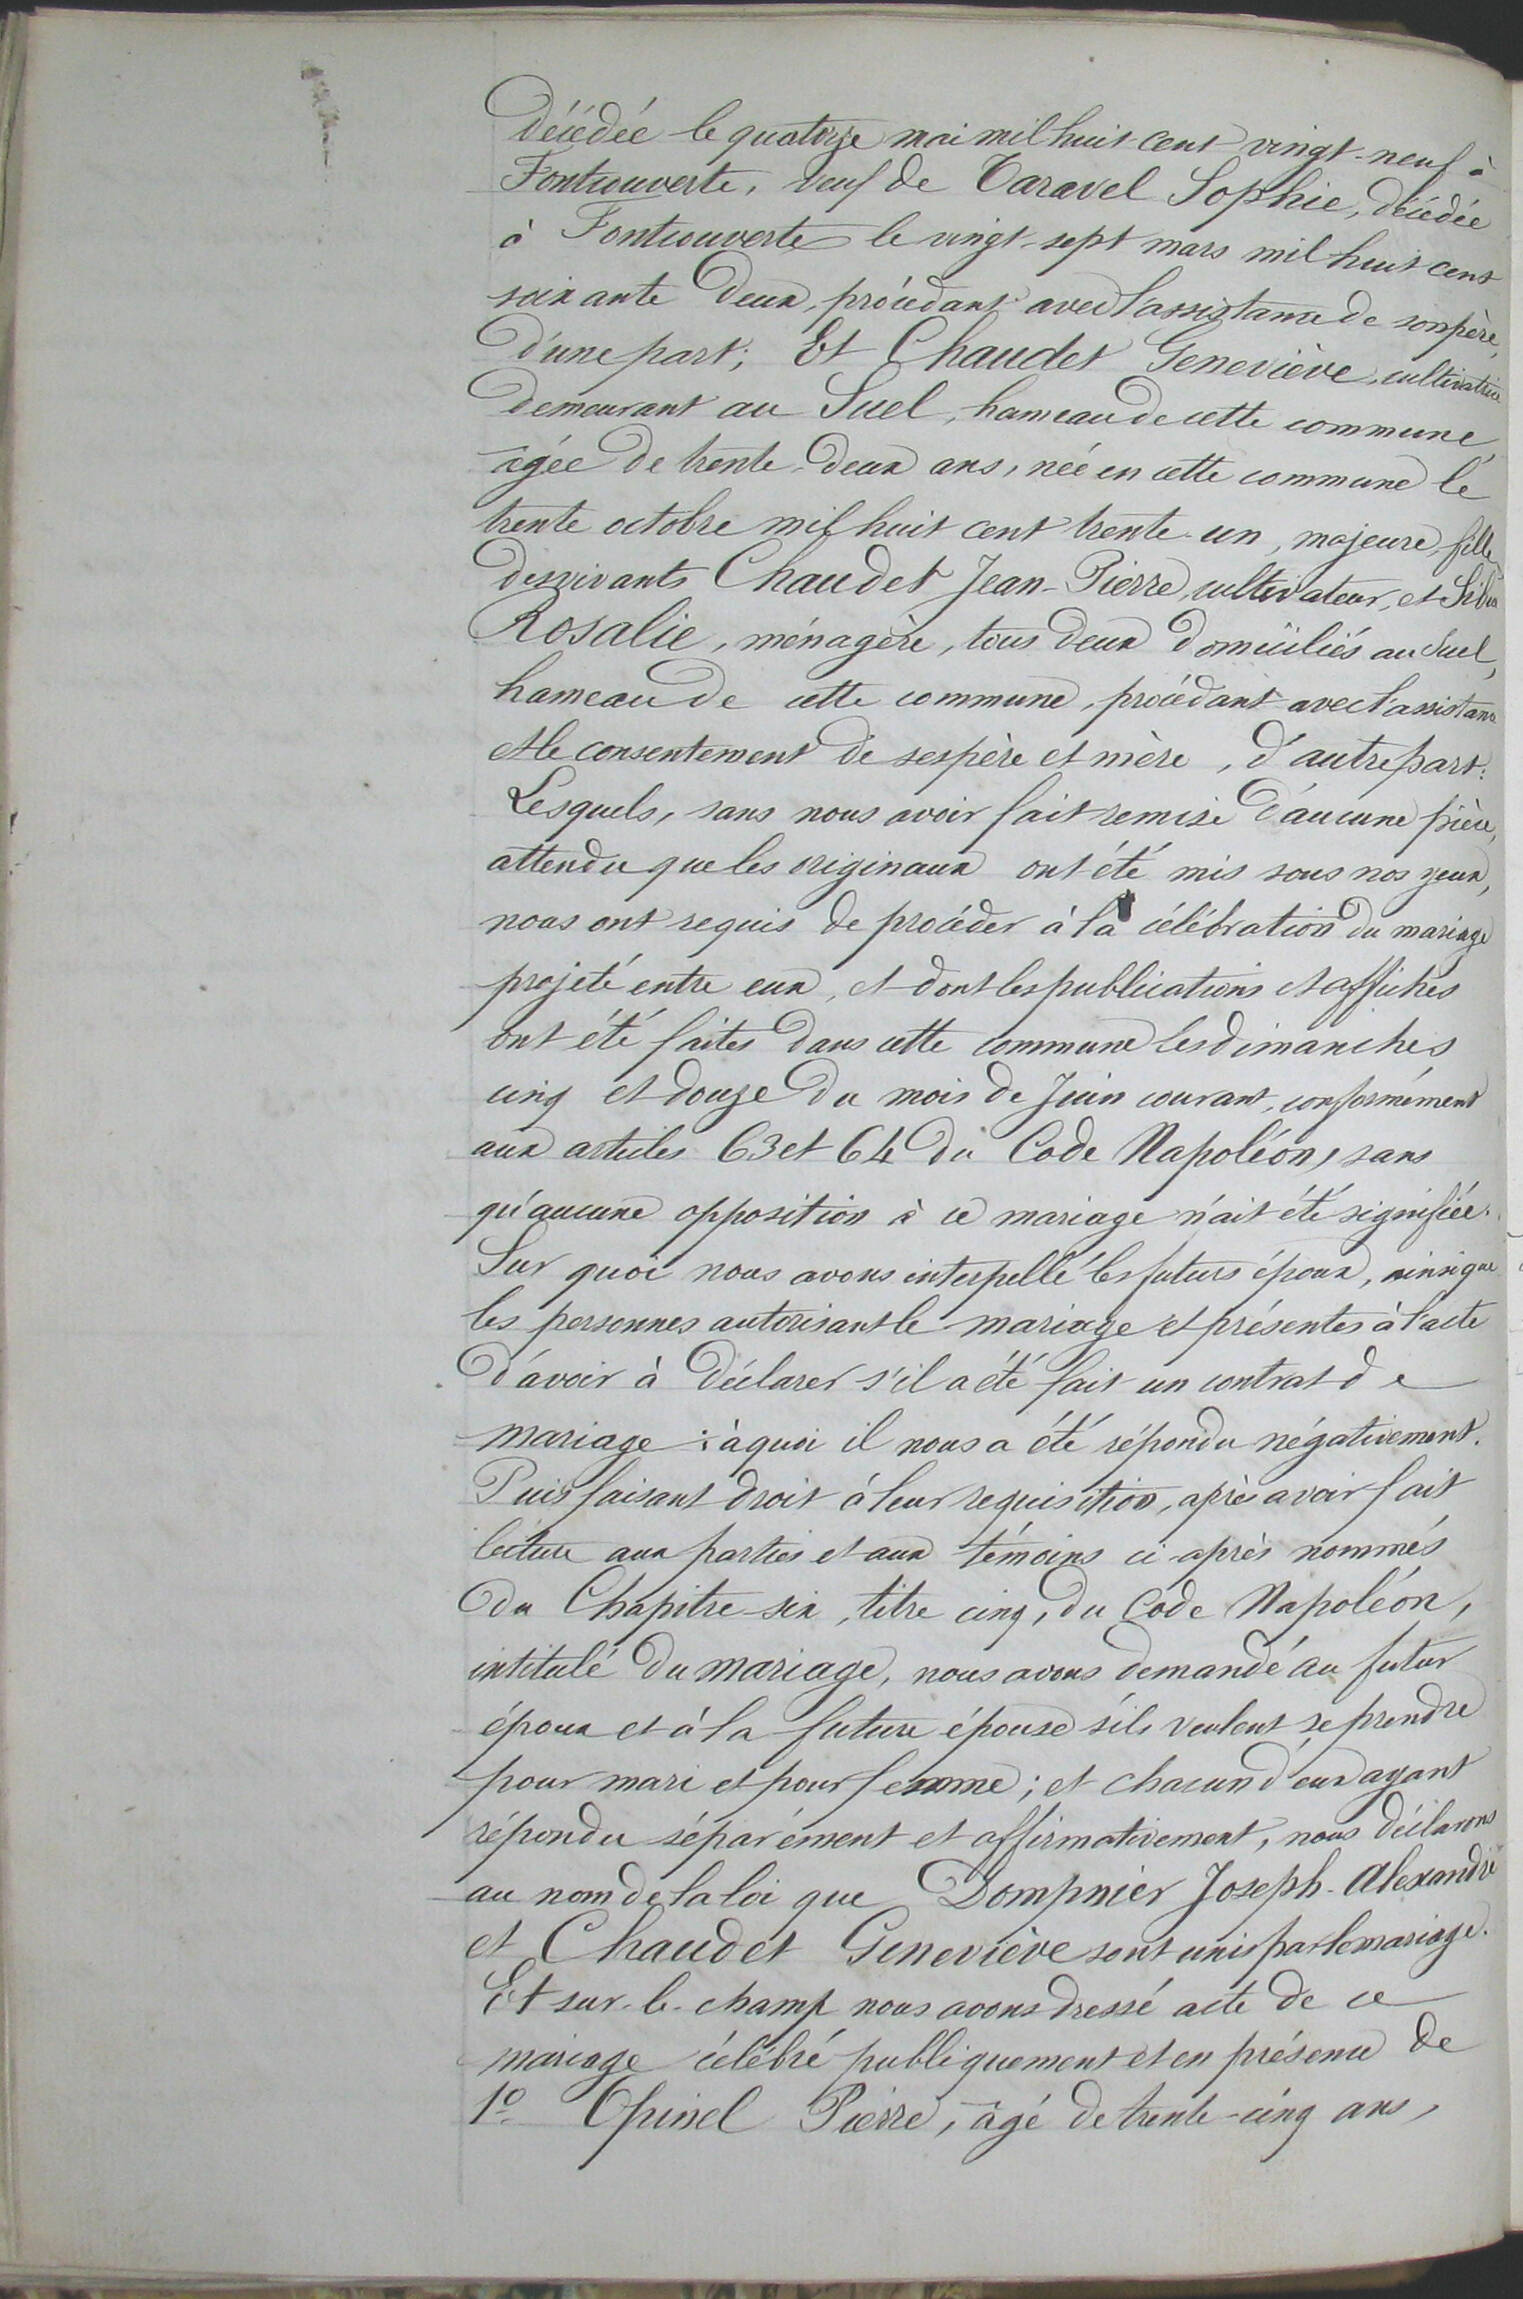 Décédée le quatorze mai mil huit cent vingt-neuf à
Fontcouverte, veuf de Taravel Sophie, décédée
à Fontcouverte le vingt-sept mars mil huit cent
soixante deux, procédant avec l'assistance de son père,
d'une part; Et Chaudet Geneviève, cultivatrice
demeurant au Suel, hameau de cette commune,
âgée de trente-deux ans, née en cette commune le
trente octobre mil huit cent trente-un, majeure, fille
des vivants Chaudet Jean-Pierre, cultivateur, et
Rosalie, ménagère, tous deux domiciliés au Suel,
hameau de cette commune, procédant avec l'assistance
et le consentement de ses père et mère, d'autre part:
Lesquels, sans nous avoir fait remise d'aucune pièce,
attendu que les originaux ont été mis sous nos yeux,
nous ont requis de procéder à la célébration du mariage
projeté entre eux, et dont les publications et affiches
ont été faites dans cette commune les dimanches
cinq et douze du mois de Juin courant, conformément
aux articles 63 et 64 du Code Napoléon, sans
qu'aucune opposition à ce mariage n'ait été signifiée.
Sur quoi nous avons interpellé les futurs époux, ainsi que
les personnes autorisant le mariage et présentes à l'acte
d'avoir à déclarer s'il a été fait un contrat de
mariage: à quoi il nous a été répondu négativement.
Puis faisant droit à leur requisition, après avoir fait
lecture aux parties et aux témoins ci-après nommés
du Chapitre six, titre cinq, du Code Napoléon,
intitulé du mariage, nous avons demandé au futur
époux et à la future épouse s'ils veulent se prendre
pour mari et pour femme; et chacun d'eux ayant
répondu séparément et affirmativement, nous déclarons
au nom de la loi que Dompnier Joseph-Alexandre
et Chaudet Geneviève sont unis par le mariage.
Et sur-le-champ nous avons dressé acte de ce
mariage célébré publiquement et en présence de
1º Opinel Pierre, âgé de trente-cinq ans,